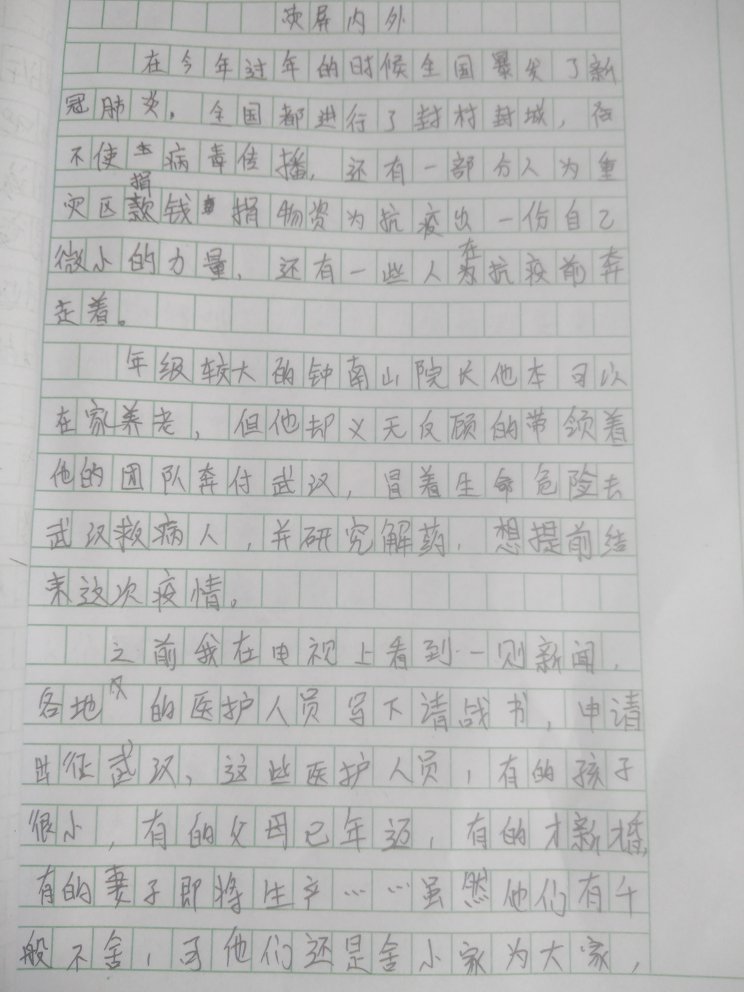 荧屏内外
在今年过年的时候全国暴发了新
冠肺炎。全国都进行了封村封城，
不使病毒传播，还有一部分人为重
灾区捐款钱捐物资为抗疫出一份自己
微小的力量，还有一些人在抗疫前奔
走着。
年级较大的钟南山院长他本可以
在家养老，但他却义无反顾的带领着
他的团队奔付武汉，冒着生命危险去
武汉救病人，并研究解药，想提前结
束这次疫情。
之前我在电视上看到一则新闻，
各地的医护人员写下请战书，申请
征武汉，这些医护人员，有的孩子
很小，有的父母已年迈，有的才新婚，
有的妻子即将生产……虽然他们有千
般不舍，可他们还是舍小家为大家，